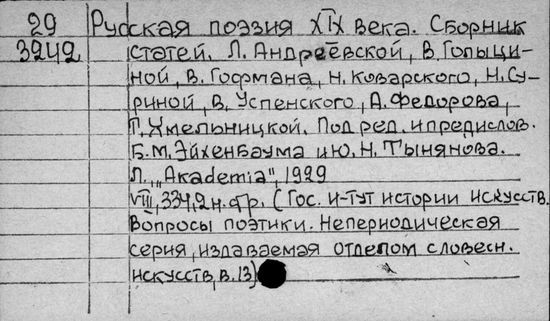 29 Русская поэзия XIX века. Сборник
3242 статей. Л. Андреевской, В. Голыци-
ной, В. Гофмана, Н. Коварского, Н. Су-
риной, В. Успенского, А. Федорова,
Т. Хмельницкой. Под ред. и предислов.
Б. М. Эйхенбаума и Ю. Н. Тынянова.
Л., "Akademia", 1929
VIII, 334, 2 н. фр. (Гос. и-тут истории искусств.
Вопросы поэтики. Непериодическая
серия, издаваемая отделом словесн.
искусств, в. 13)